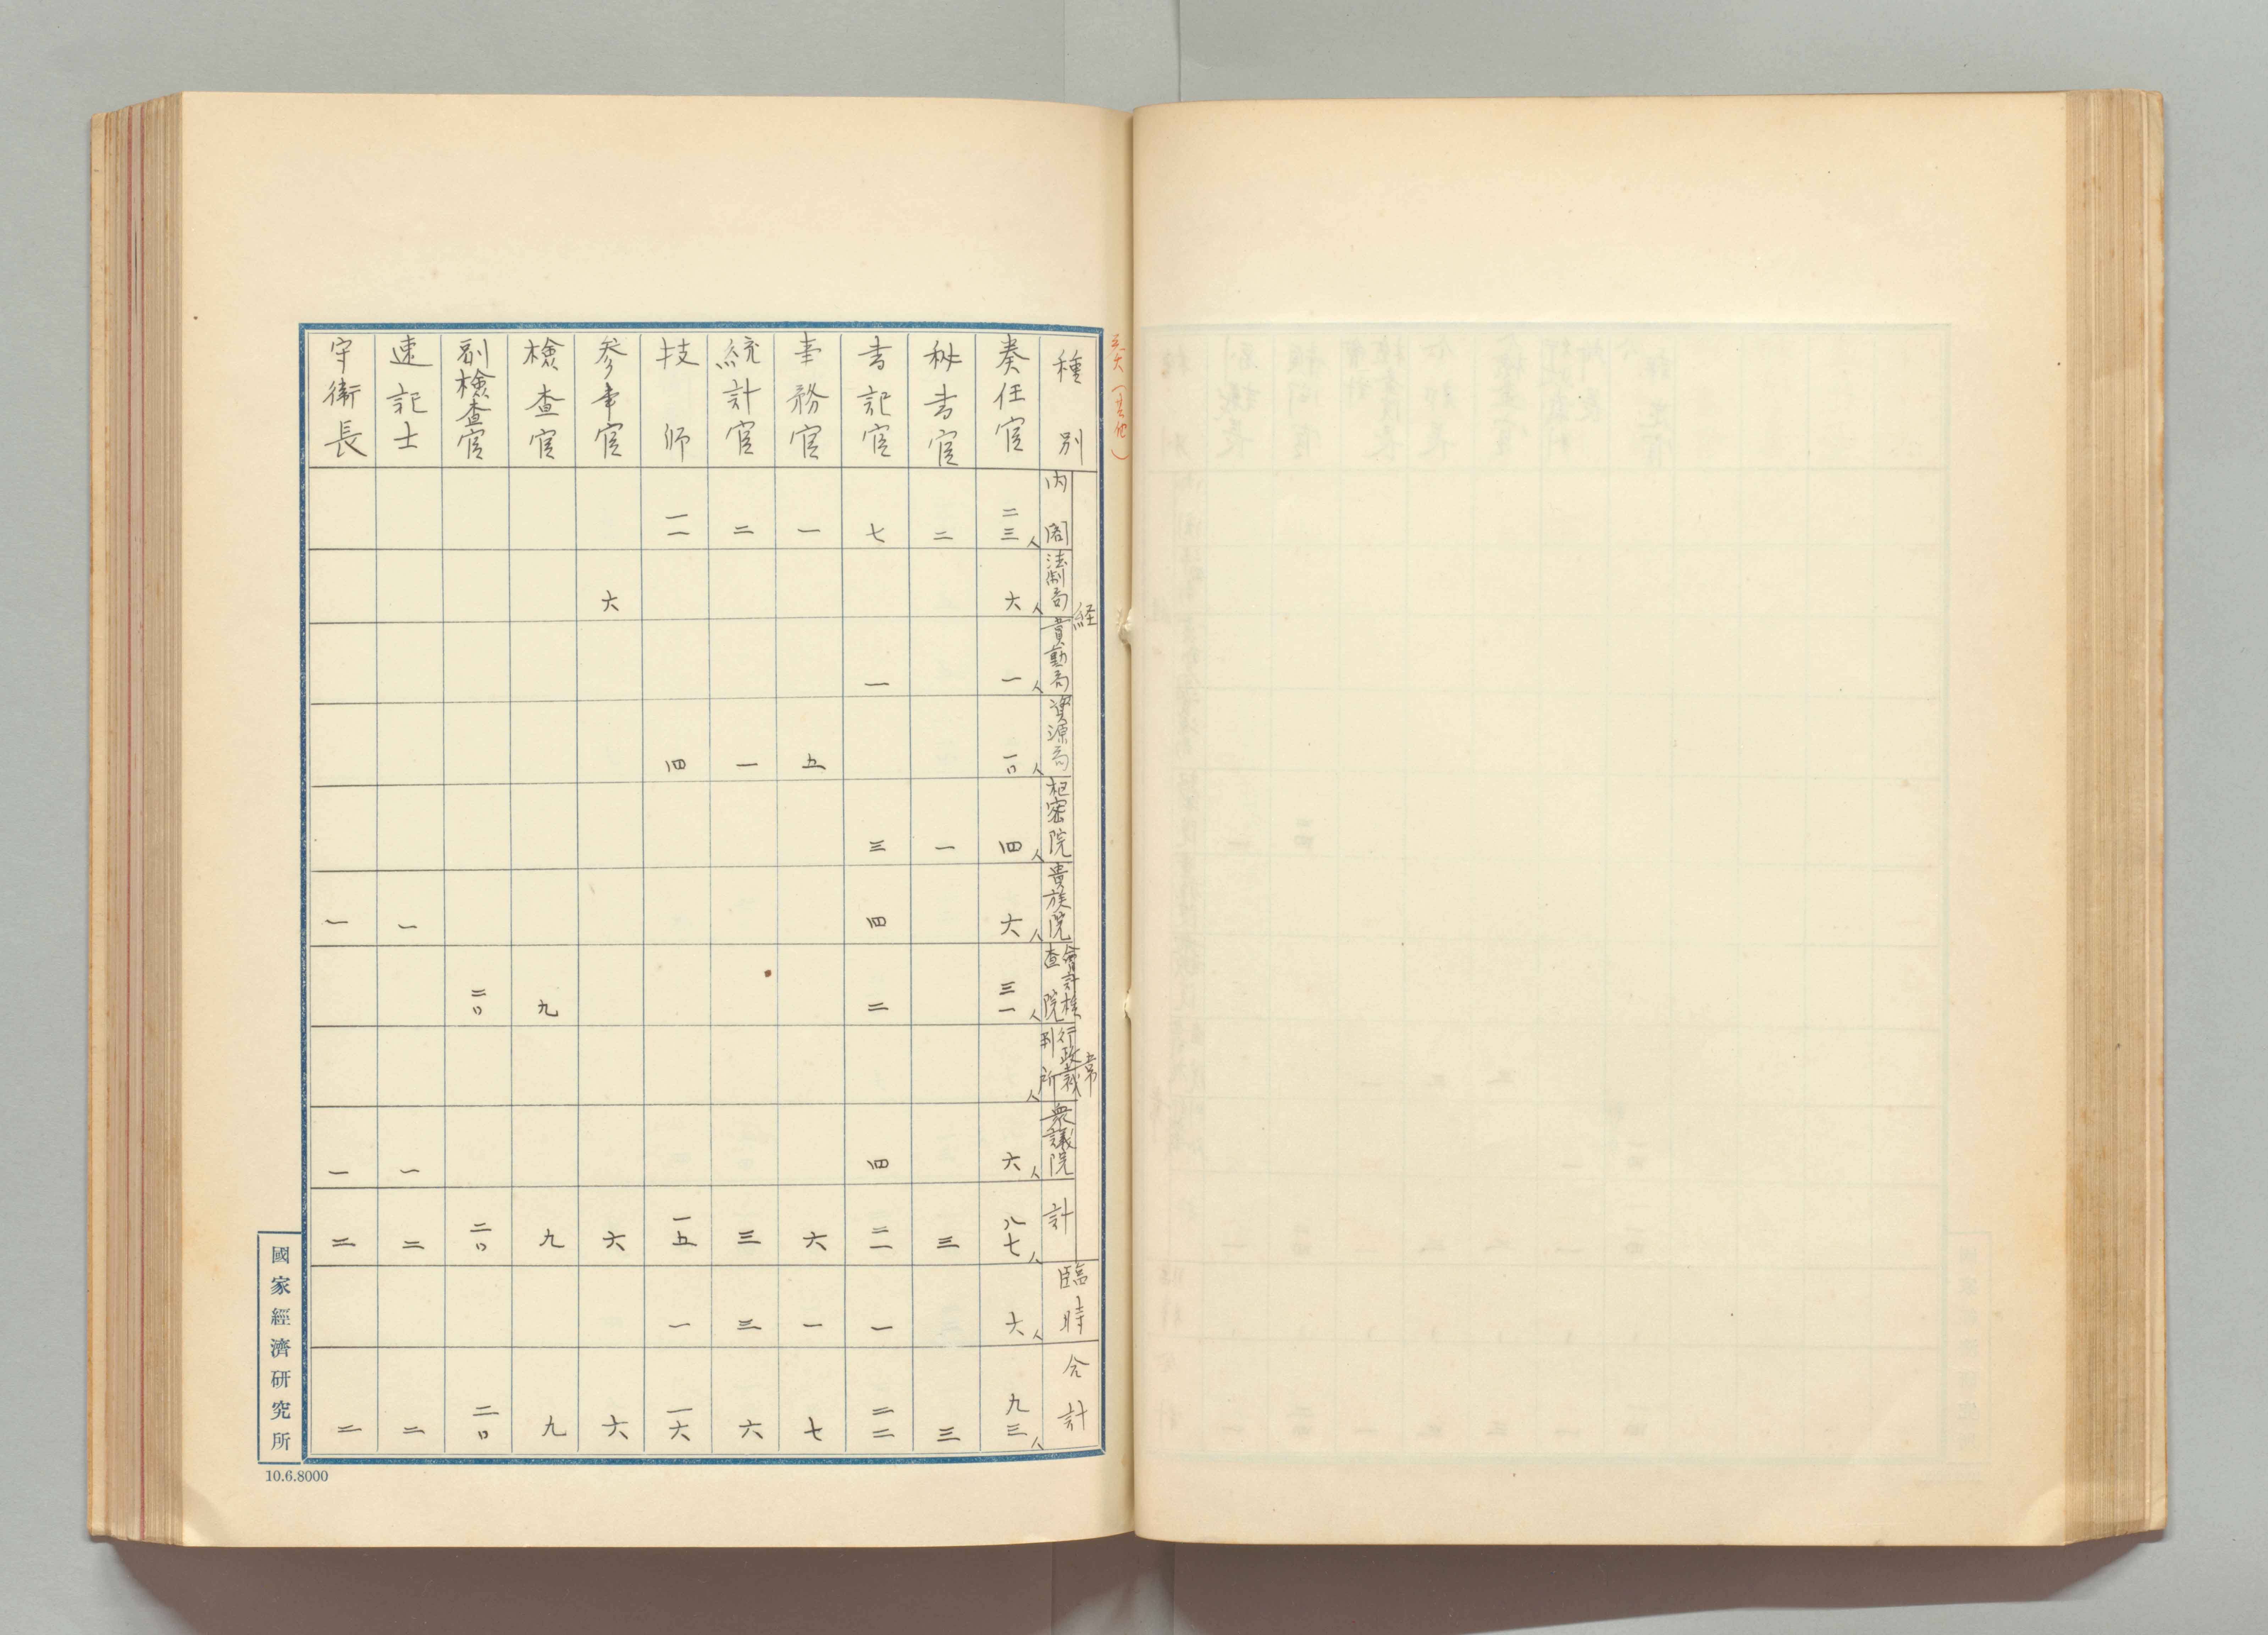 （其他）
種別 経常 内閣 法制局 賞勲局 資源局 枢密院 貴族院 會計検査院 行政裁判所 衆議院 計 臨時 合計
奏任官 二三人 六人 一人 一〇人 四人 六人 三一人 人 六人 八七人 六人 九三人
秘書官 二 一 三 三
書記官 七 一 三 四 二 四 二一 一 二二
事務官 一 五 六 一 七
統計官 二 一 三 三 六
技師 一一 四 一五 一 一六
参事官 六 六 六
檢査官 九 九 九
副檢査官 二〇 二〇 二〇
速記士 一 一 二 二
守衛長 一 一 二 二
國家經濟研究所
10.6.8000